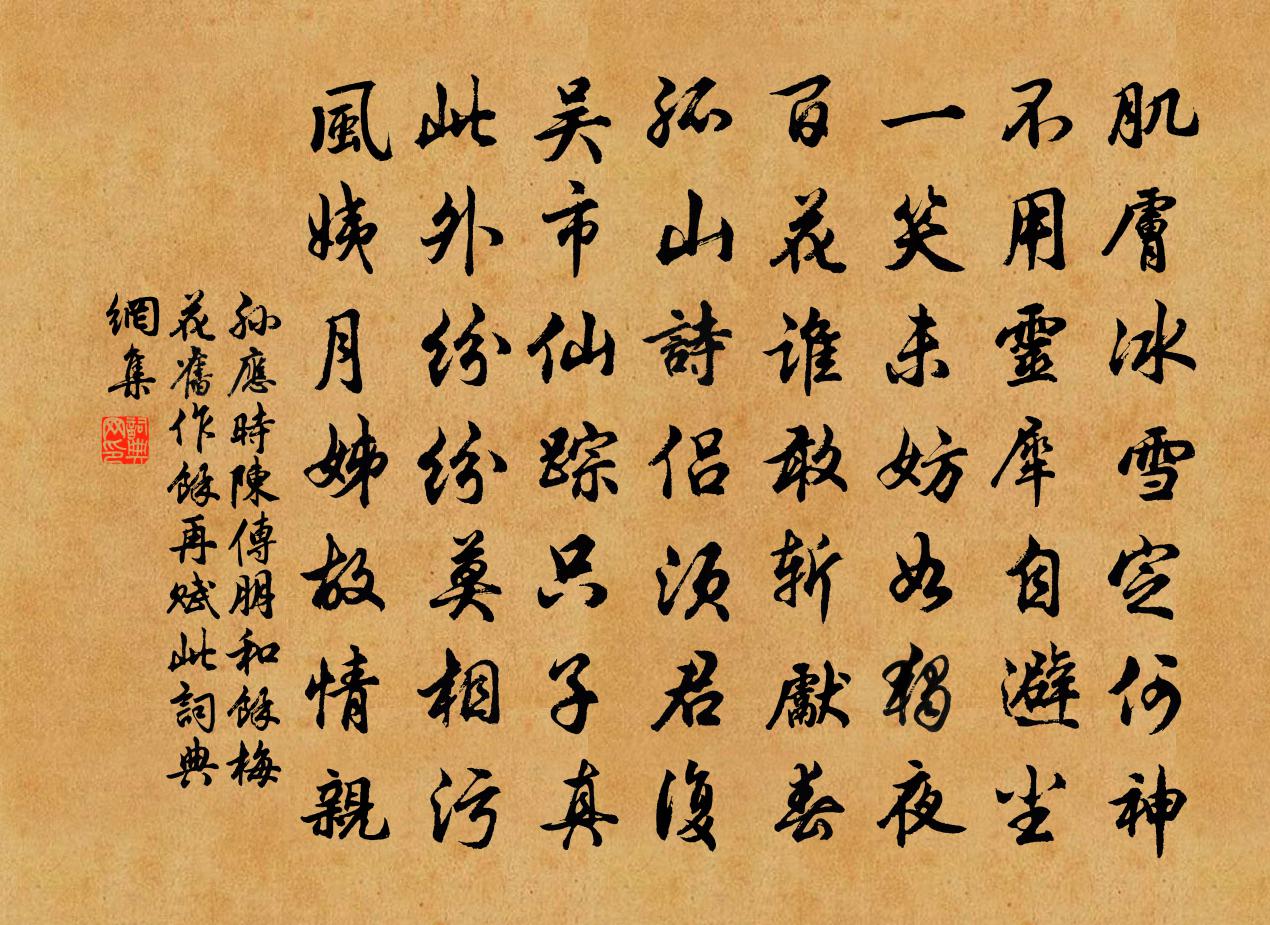 肌膚冰雪定何神
不用靈犀自避尘
一笑未妨如獨夜
百花誰敢斬獻春
孤山詩侣須君復
吴市仙踪只子真
此外紛紛莫相污
風姨月姊故情親
孫應時陳傅朋和餘梅
花舊作餘再赋此詞典
網集
詞典
网印